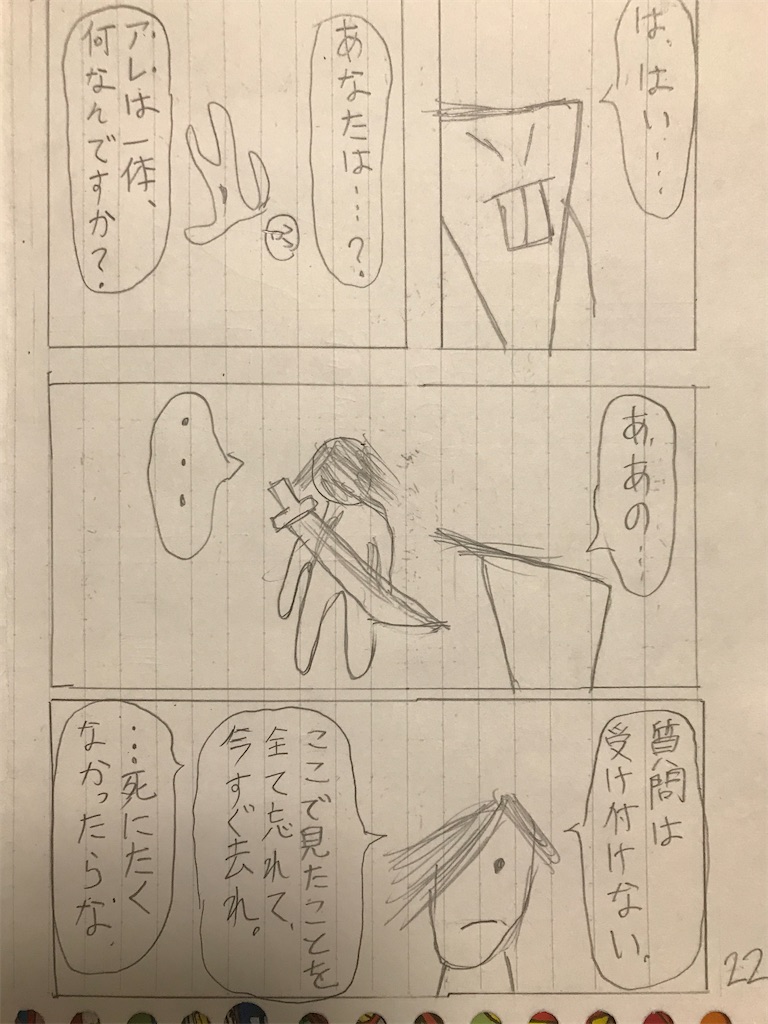 は、はい…
あなたは…?
アレは一体、
何なんですか?
あ、あの…
…
質問は
受け付けない。
ここで見たことを
全て忘れて、
今すぐ去れ。
…死にたく
なかったらな。
22